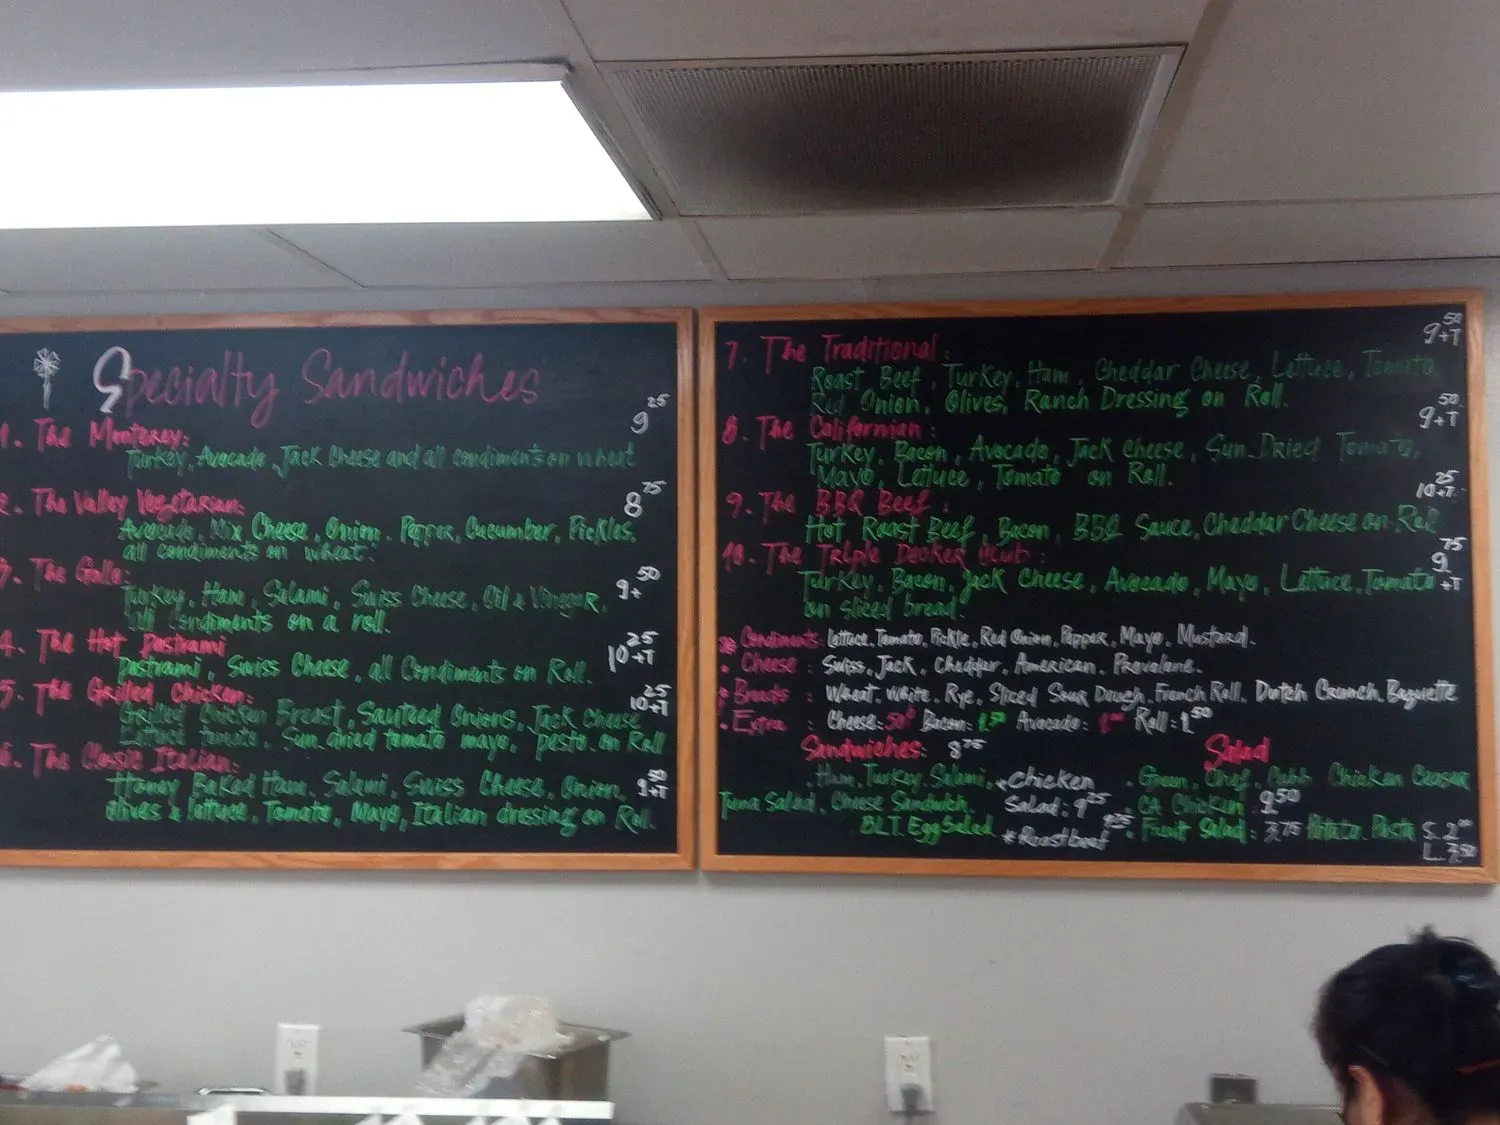 Specialty Sandwiches
1. The Monterey: 9 25
Turkey, Avocado, Jack Cheese and all condiments on wheat
2. The Valley Vegetarian: 8 75
Avocado, Mix Cheese, Onion, Pepper, Cucumber, Pickles,
all condiments on wheat.
3. The Gallo: 9+ 50
Turkey, Ham, Salami, Swiss Cheese, Oil & Vinegar,
all Condiments on a roll.
4. The Hot Pastrami 10+T 25
Pastrami, Swiss Cheese, all Condiments on Roll.
5. The Grilled Chicken: 10+T 25
Grilled Chicken Breast, Sauteed Onions, Jack Cheese
Lettuce tomato, Sun-dried tomato mayo, pesto on Roll
6. The Classic Italian: 9+T 50
Honey Baked Ham, Salami, Swiss Cheese, Onion,
Olives & lettuce, Tomato, Mayo, Italian dressing on Roll.
7. The Traditional: 9+T 50
Roast Beef, Turkey, Ham, Cheddar Cheese, Lettuce, Tomato,
Red Onion, Olives, Ranch Dressing on Roll.
8. The Californian: 9+T 50
Turkey, Bacon, Avocado, Jack Cheese, Sun-Dried Tomato,
Mayo, Lettuce, Tomato on Roll.
9. The BBQ Beef: 10+T 25
Hot Roast Beef, Bacon, BBQ Sauce, Cheddar Cheese on Roll
10. The Triple Decker Club: 9+T 75
Turkey, Bacon, Jack Cheese, Avocado, Mayo, Lettuce, Tomato
on sliced bread.
* Condiments: Lettuce, Tomato, Pickle, Red Onion, Pepper, Mayo, Mustard.
• Cheese: Swiss, Jack, Cheddar, American, Provalone.
• Breads: Wheat, White, Rye, Sliced Sour Dough, French Roll, Dutch Crunch, Baguette
• Extra: Cheese: 50¢ Bacon: 1.50 Avocado: 1.00 Roll: 1 50
Sandwiches: 8 75
Ham, Turkey, Salami,
Tuna Salad, Cheese Sandwich,
BLT, Egg Salad
* Chicken
Salad: 9 25
* Roastbeef 9 25
Salad
• Green, Chef, Cobb Chicken Caesar
• CA Chicken: 9 50
• Fruit Salad: 3 75 Potato, Pasta S. 2 00
L. 3 50